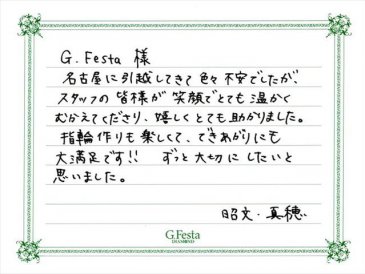 G.Festa 様
名古屋に引越してきて色々不安でしたが、
スタッフの皆様が笑顔でとても温かく
むかえてくださり、嬉しくとても助かりました。
指輪作りも楽しくて、できあがりにも
大満足です!! ずっと大切にしたいと
思いました。
昭文・真穂
G.Festa
DIAMOND